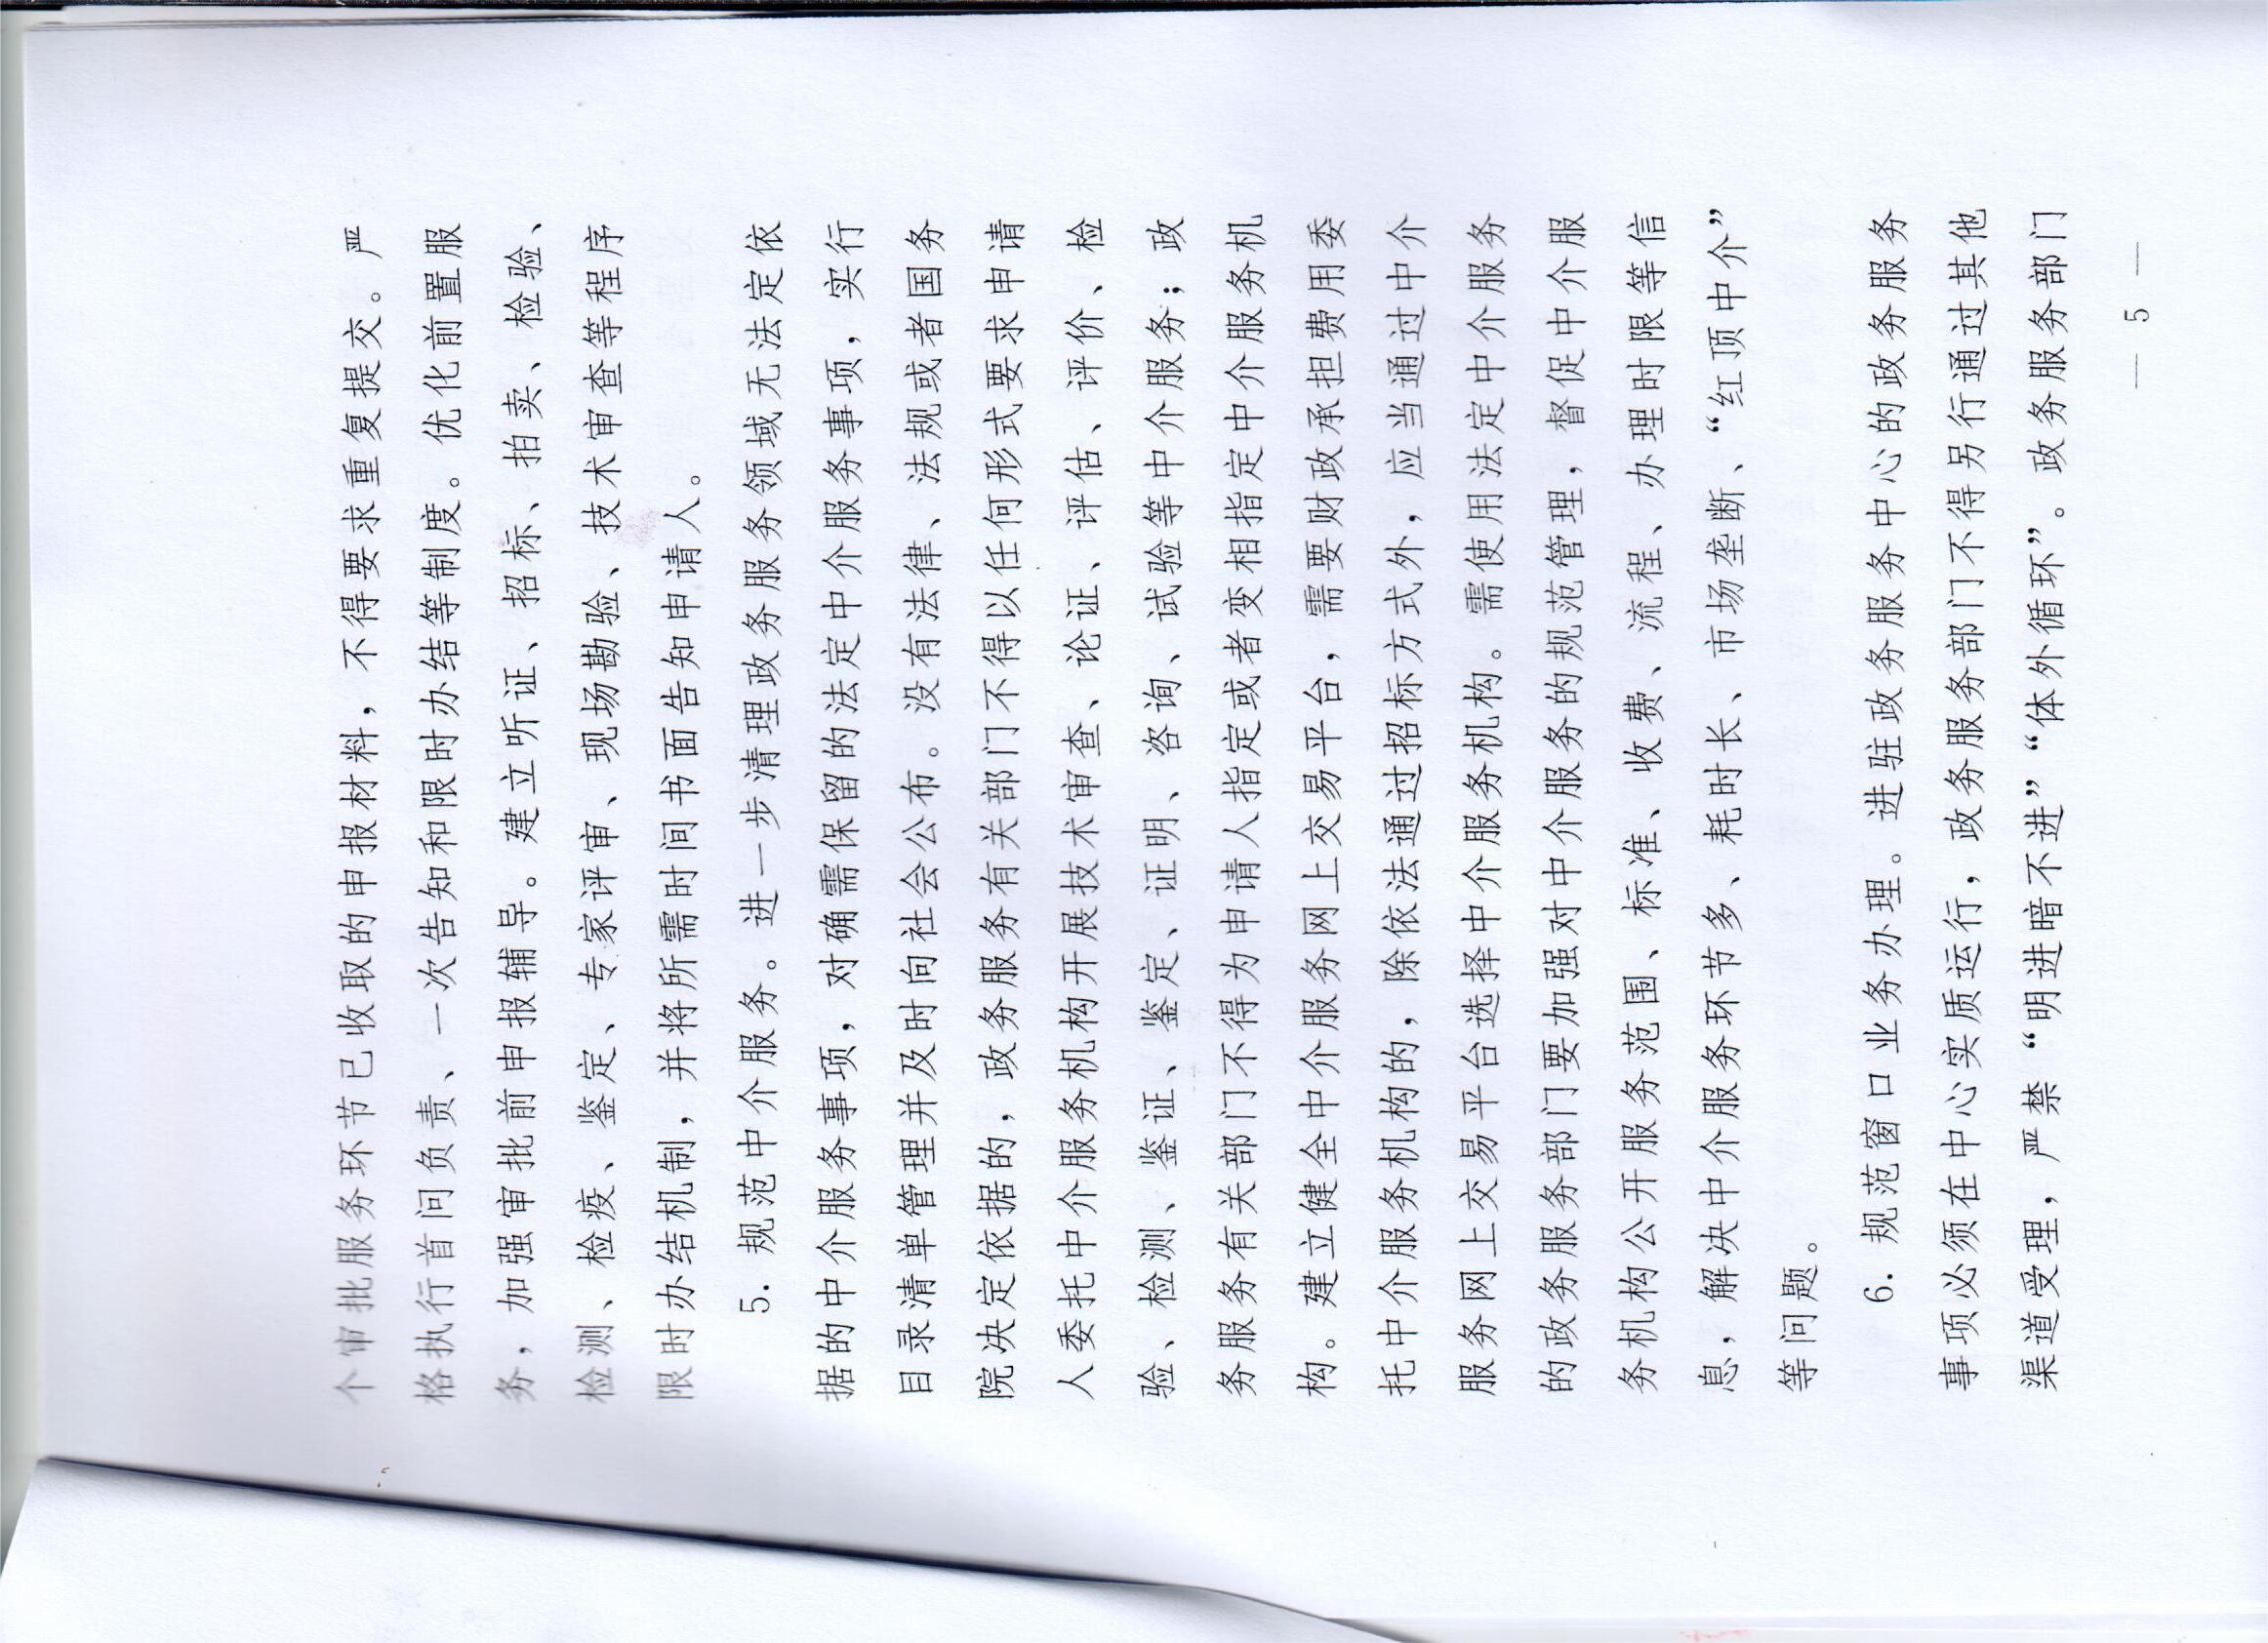 个审批服务环节已收取的申报材料，不得要求重复提交。严
格执行首问负责、一次告知和限时办结等制度。优化前置服
务，加强审批前申报辅导。建立听证、招标、拍卖、检验、
检测、检疫、鉴定、专家评审、现场勘验、技术审查等程序
限时办结机制，并将所需时间书面告知申请人。
5. 规范中介服务。进一步清理政务服务领域无法定依
据的中介服务事项，对确需保留的法定中介服务事项，实行
目录清单管理并及时向社会公布。没有法律、法规或者国务
院决定依据的，政务服务有关部门不得以任何形式要求申请
人委托中介服务机构开展技术审查、论证、评估、评价、检
验、检测、鉴证、鉴定、证明、咨询、试验等中介服务；政
务服务有关部门不得为申请人指定或者变相指定中介服务机
构。建立健全中介服务网上交易平台，需要财政承担费用委
托中介服务机构的，除依法通过招标方式外，应当通过中介
服务网上交易平台选择中介服务机构。需使用法定中介服务
的政务服务部门要加强对中介服务的规范管理，督促中介服
务机构公开服务范围、标准、收费、流程、办理时限等信
息，解决中介服务环节多、耗时长、市场垄断、“红顶中介”
等问题。
6. 规范窗口业务办理。进驻政务服务中心的政务服务
事项必须在中心实质运行，政务服务部门不得另行通过其他
渠道受理，严禁“明进暗不进”“体外循环”。政务服务部门
— 5 —